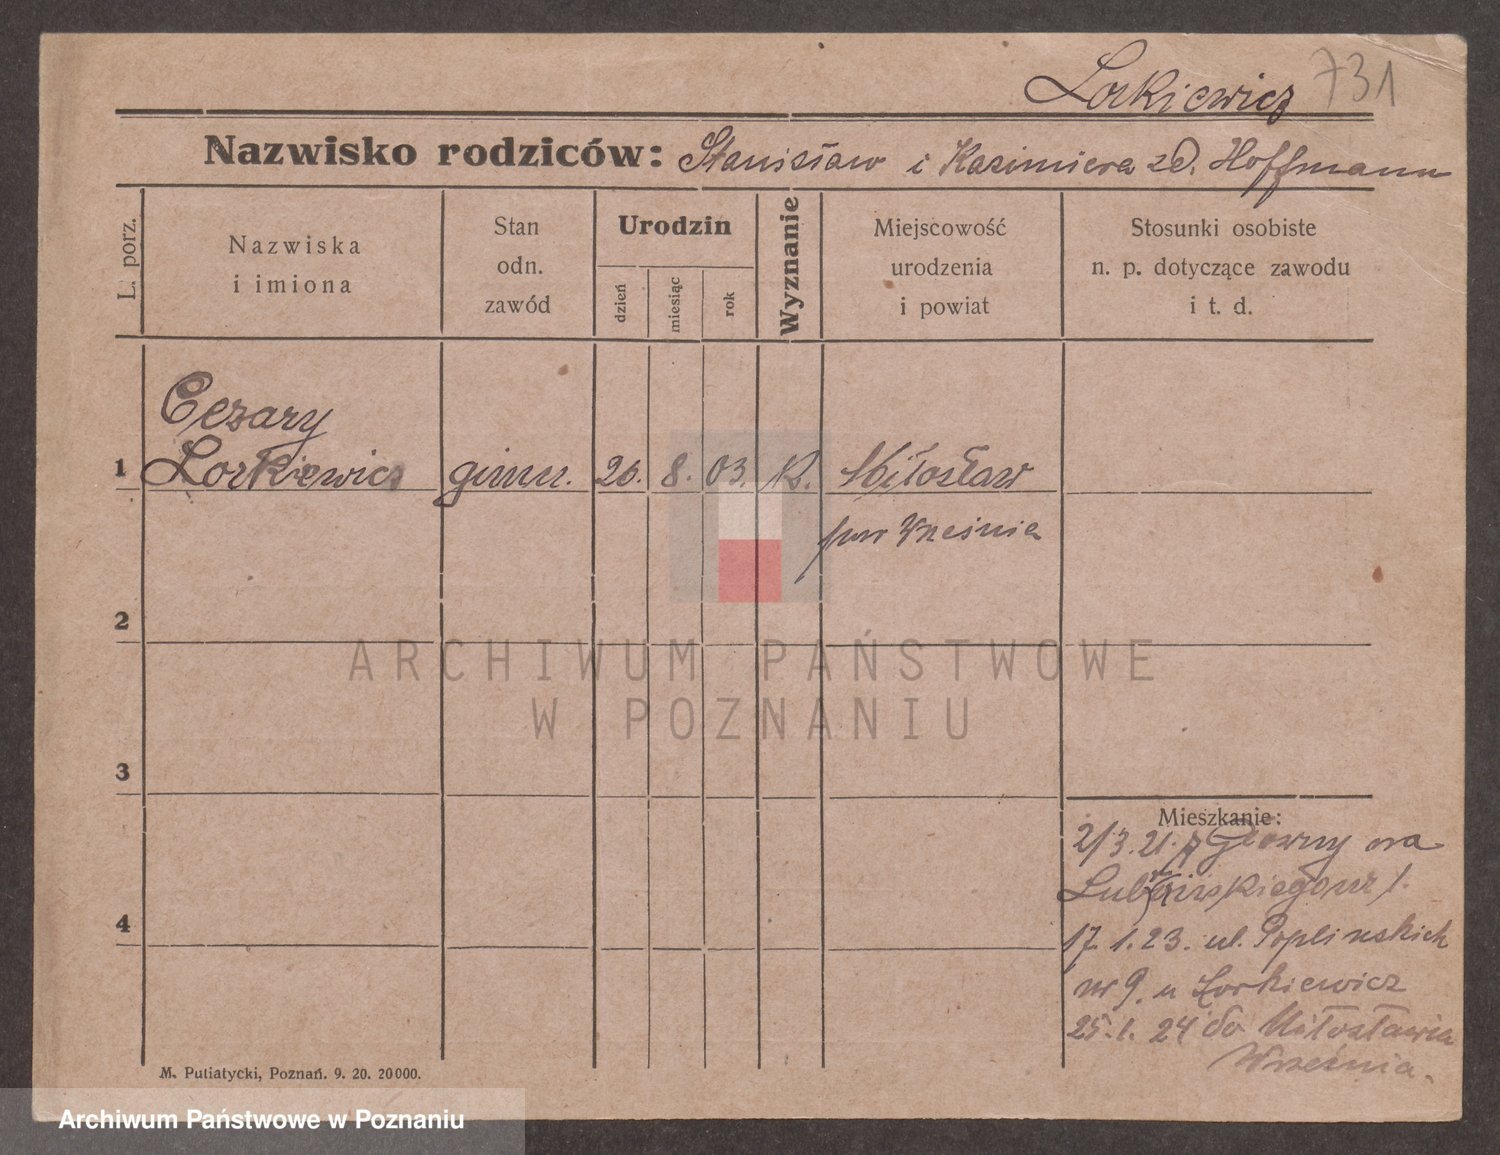 Lorkiewicz 731
Nazwisko rodziców: Stanisław i Kazimiera zd. Hoffmann
L. porz.
Nazwiska
i imiona
Stan
odn.
zawód
Urodzin
dzień
miesiąc
rok
Wyznanie
Miejscowość
urodzenia
i powiat
Stosunki osobiste
n. p. dotyczące zawodu
i t. d.
Cezary
1 Lorkiewicz gimn. 26. 8. 03. K. Miłosław
pow Września
2
ARCHIWUM PAŃSTWOWE
W POZNANIU
3
Mieszkanie:
2/3.21. Główny
4
17.1.23. ul. Poplińskich
nr 9. u Lorkiewicz
25.1.24 do Miłosławia
Września.
M. Putiatycki, Poznań. 9. 20. 20000.
Archiwum Państwowe w Poznaniu